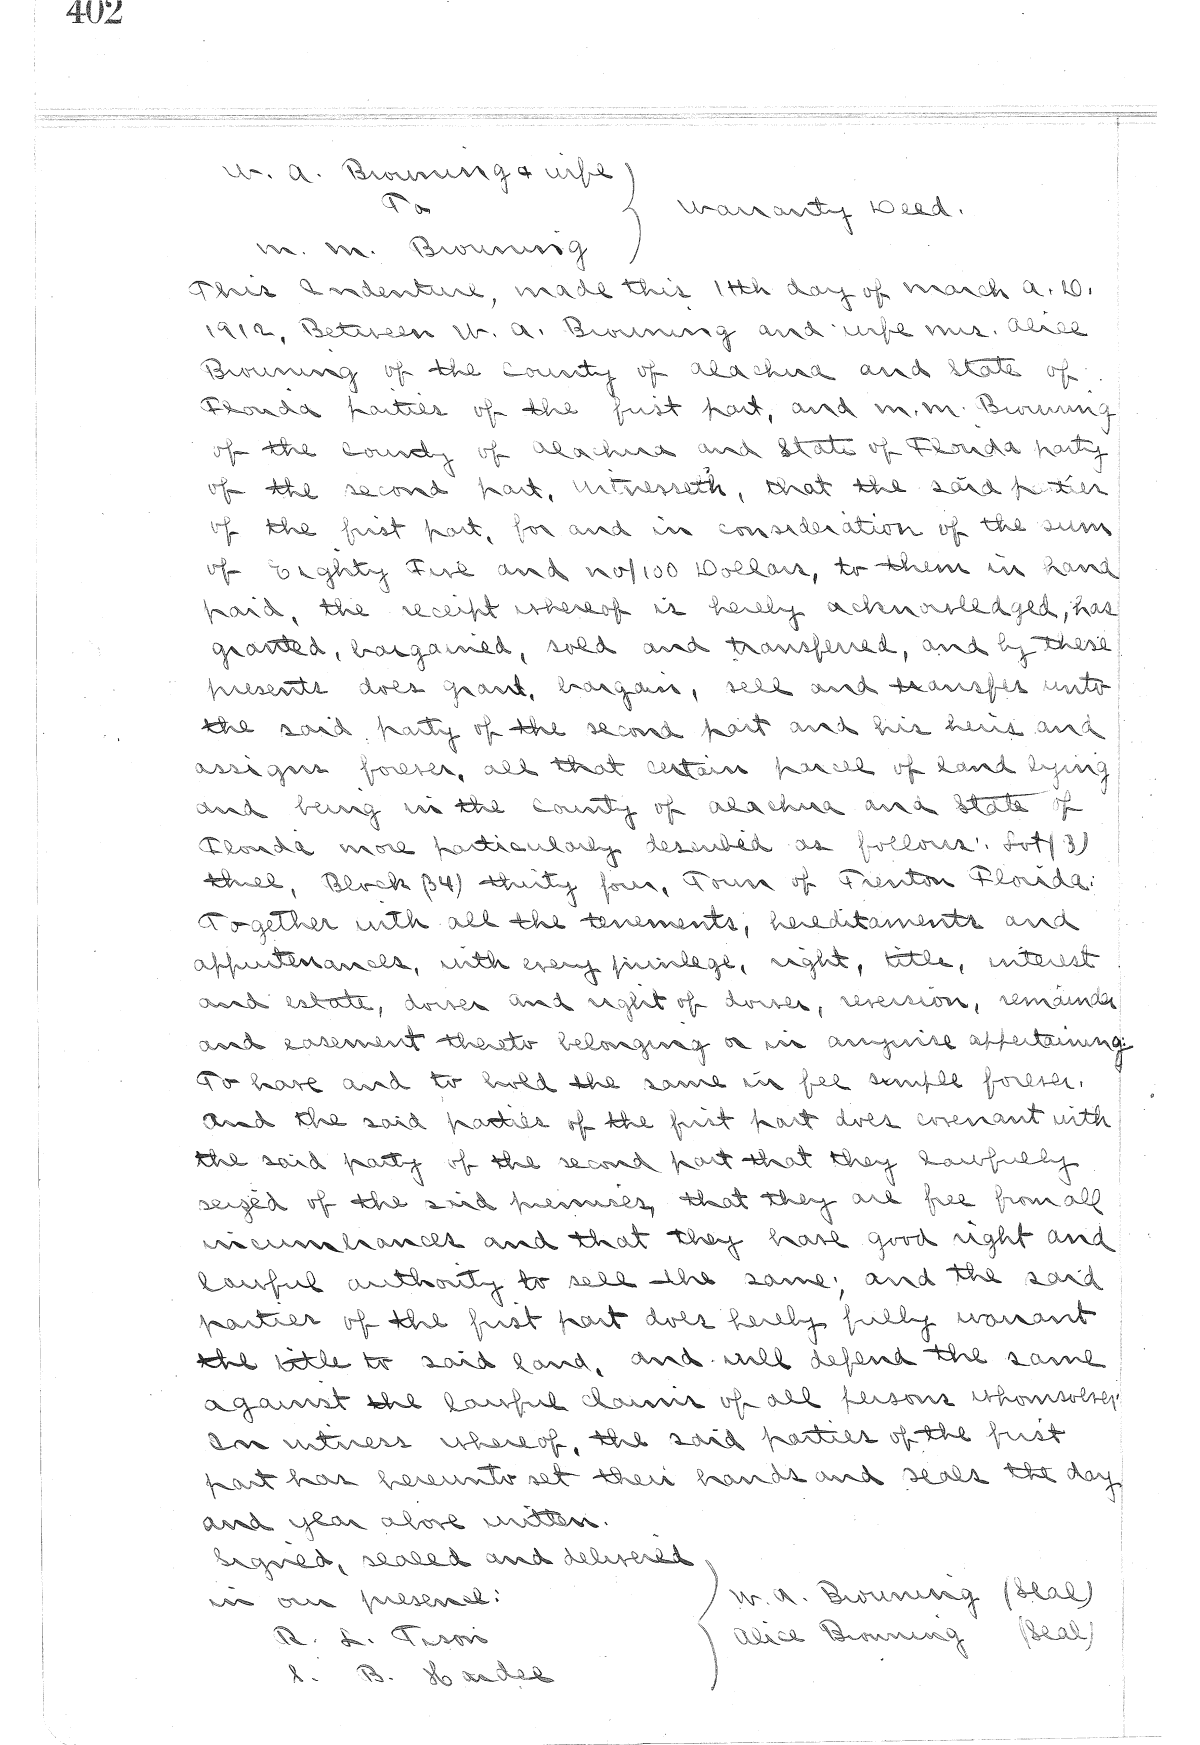 402
W. A. Browning & wife
To
Warranty Deed.
M. M. Browning
This Indenture, made this 11th day of March A. D.
1912, Between W. A. Browning and wife Mrs. Alice
Browning of the County of Alachua and State of
Florida parties of the first part, and M. M. Browning
of the County of Alachua and State of Florida party
of the second part, Witnesseth, that the said parties
of the first part, for and in consideration of the sum
of Eighty Five and no/100 Dollars, to them in hand
paid, the receipt whereof is hereby acknowledged, has
granted, bargained, sold and transferred, and by these
presents does grant, bargain, sell and transfer unto
the said party of the second part and his heirs and
assigns forever, all that certain parcel of land lying
and being in the County of Alachua and State of
Florida more particularly described as follows: Lot (3)
three, Block (34) thirty four, Town of Trenton Florida.
Together with all the tenements, hereditaments and
appurtenances, with every privilege, right, title, interest
and estate, dower and right of dower, reversion, remainder
and easement thereto belonging or in anywise appertaining:
To have and to hold the same in fee simple forever.
And the said parties of the first part does covenant with
the said party of the second part that they lawfully
seized of the said premises, that they are free from all
incumbrances and that they have good right and
lawful authority to sell the same; and the said
parties of the first part does hereby fully warrant
the title to said land, and will defend the same
against the lawful claims of all persons whomsoever.
In witness whereof, the said parties of the first
part has hereunto set their hands and seals the day
and year above written.
Signed, sealed and delivered
in our presence:
W. A. Browning (Seal)
R. L. Tison
Alice Browning (Seal)
B. Hardee